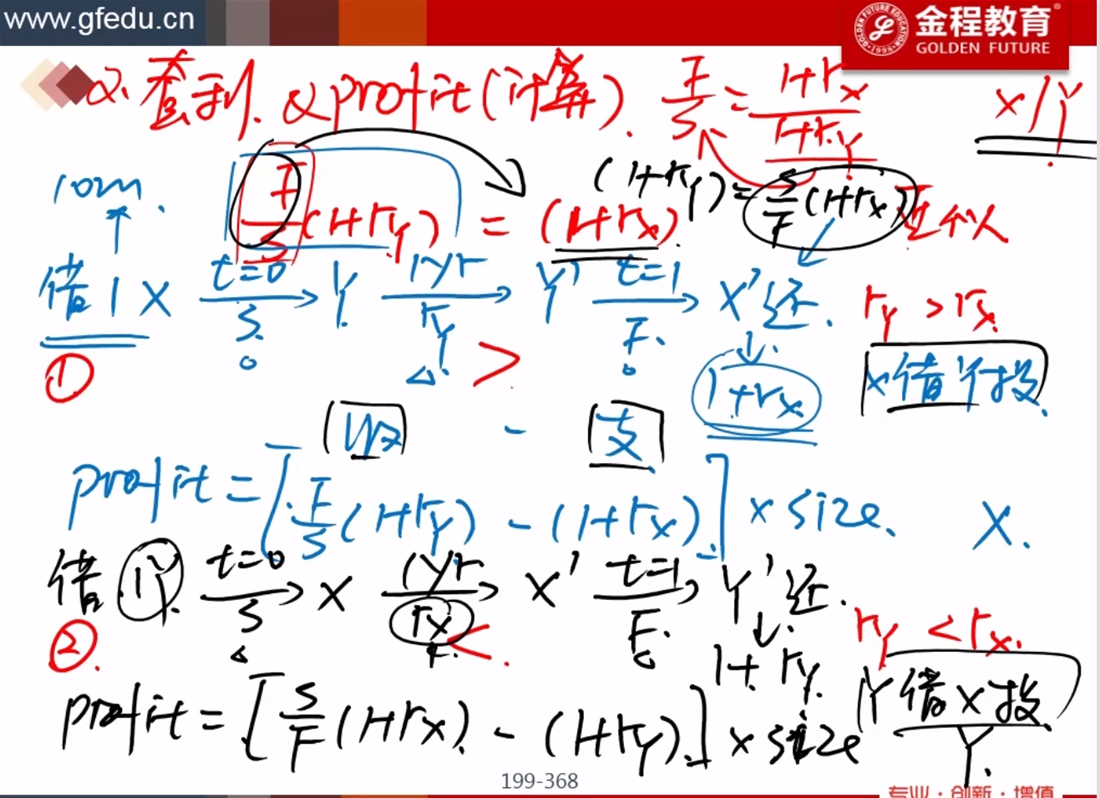 www.gfedu.cn
金程教育®
GOLDEN FUTURE
2. 套利. & profit (计算). F/S = (1+rx)/(1+ry) X/Y
10m. F/S (1+ry) = (1+rx). (1+ry) = S/F (1+rx) 近似
借 1 X t=0 S. Y 1yr ry Y' t=1 F. X' 还. ry > rx.
① > 1+rx X借Y投.
收 - 支.
profit = [F/S (1+ry) - (1+rx).] × size. X.
借 1Y. t=0 S X 1yr rx X' t=1 F. Y' 还.
②. <. 1+ry. ry < rx.
profit = [S/F (1+rx). - (1+ry).] × size Y借X投
Y.
199-368
专业·创新·增值